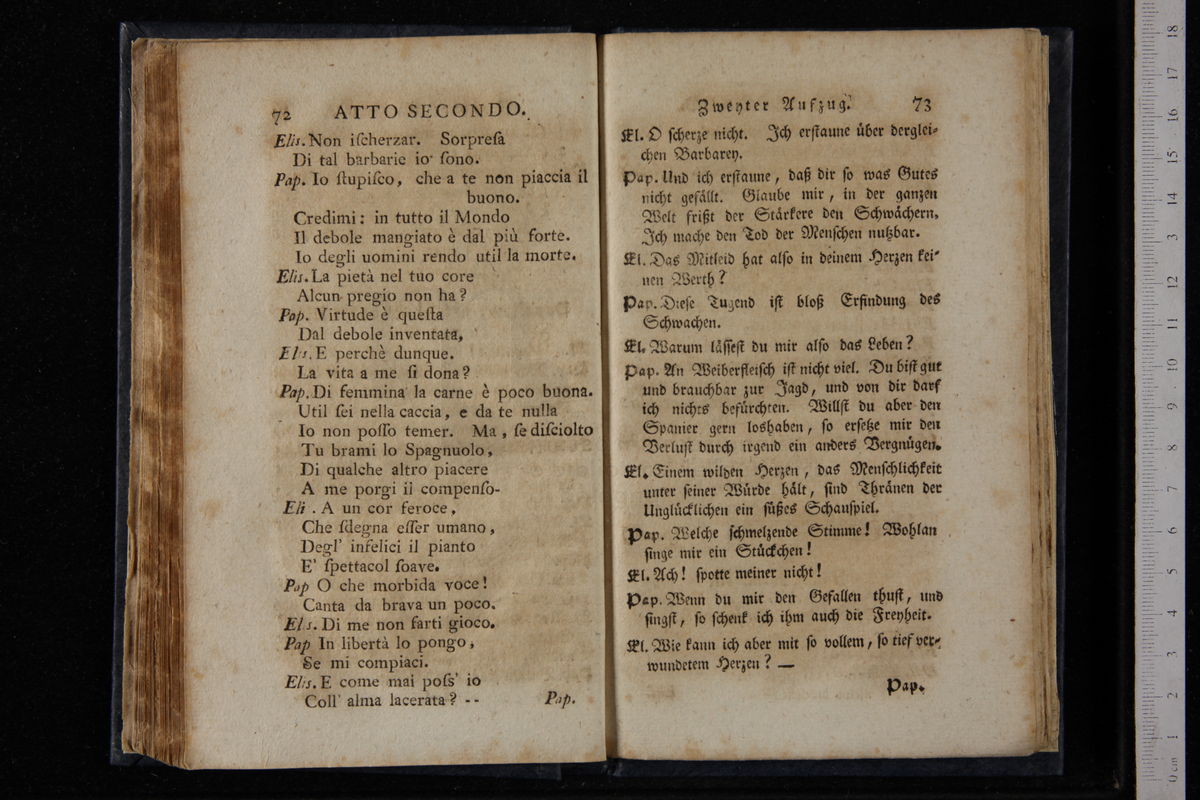 72 ATTO SECONDO.
Elis. Non iſcherzar. Sorpreſa
Di tal barbarie io ſono.
Pap. Io ſtupiſco, che a te non piaccia il
buono.
Credimi: in tutto il Mondo
Il debole mangiato è dal più forte.
Io degli uomini rendo util la morte.
Elis. La pietà nel tuo core
Alcun pregio non ha?
Pap. Virtude è queſta
Dal debole inventata,
Elis. E perchè dunque.
La vita a me ſi dona?
Pap. Di femmina la carne è poco buona.
Util ſei nella caccia, e da te nulla
Io non poſſo temer. Ma, ſe diſciolto
Tu brami lo Spagnuolo,
Di qualche altro piacere
A me porgi il compenſo-
Eli . A un cor feroce,
Che ſdegna eſſer umano,
Degl' infelici il pianto
E' ſpettacol ſoave.
Pap O che morbida voce!
Canta da brava un poco.
Elis. Di me non farti gioco.
Pap In libertà lo pongo,
Se mi compiaci.
Elis. E come mai poſs' io
Coll' alma lacerata? --
Pap.
Zweyter Aufzug. 73
El. O ſcherze nicht. Ich erſtaune über derglei-
chen Barbarey.
Pap. Und ich erſtaune, daß dir ſo was Gutes
nicht gefällt. Glaube mir, in der ganzen
Welt frißt der Stärkere den Schwächern.
Ich mache den Tod der Menſchen nutzbar.
El. Das Mitleid hat alſo in deinem Herzen kei-
nen Werth?
Pap. Dieſe Tugend iſt bloß Erfindung des
Schwachen.
El. Warum läſſeſt du mir alſo das Leben?
Pap. An Weiberfleiſch iſt nicht viel. Du biſt gut
und brauchbar zur Jagd, und von dir darf
ich nichts befürchten. Willſt du aber den
Spanier gern loshaben, ſo erſetze mir den
Verluſt durch irgend ein anders Vergnügen.
El. Einem wilden Herzen, das Menſchlichkeit
unter ſeiner Würde hält, ſind Thränen der
Unglücklichen ein ſüßes Schauſpiel.
Pap. Welche ſchmelzende Stimme! Wohlan
ſinge mir ein Stückchen!
El. Ach! ſpotte meiner nicht!
Pap. Wenn du mir den Gefallen thuſt, und
ſingſt, ſo ſchenk ich ihm auch die Freyheit.
El. Wie kann ich aber mit ſo vollem, ſo tief ver-
wundetem Herzen? —
Pap.
0 cm 1 2 3 4 5 6 7 8 9 10 11 12 13 14 15 16 17 18